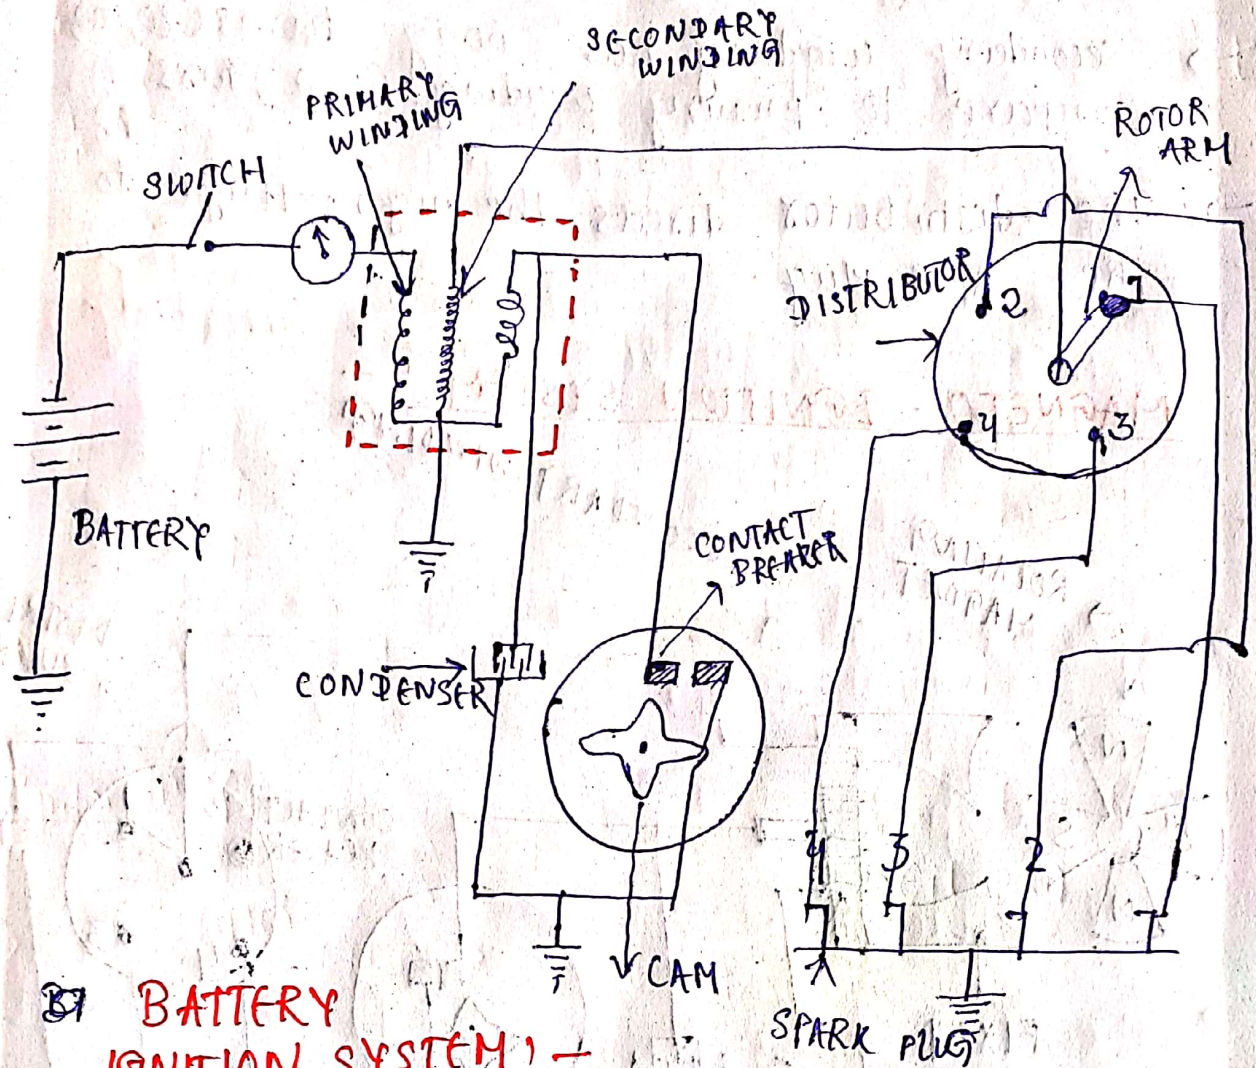 SECONDARY
WINDING
PRIMARY
WINDING
ROTOR
ARM
SWITCH
DISTRIBUTOR
2
1
4
3
BATTERY
CONTACT
BREAKER
CONDENSER
4
3
2
CAM
SPARK PLUG
BATTERY
IGNITION SYSTEM :-